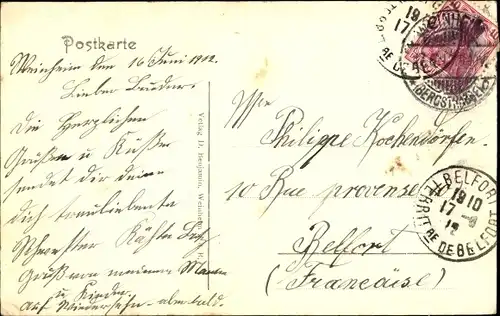 Postkarte
Weinheim den 16 Juni 1912.
Lieber Bruder.
Die Herzlichen
Grüßen u Küßen
sendet dir deine
dich treuliebente
Schwester Käthe
Gruß von meinem Mann
u Kinder
auf Wiedersehn
Verlag D. Benjamin, Weinheim
Philippe Kochendörfer
10 Rue
Belfort
(Française)
WEINHEIM
(BERGSTRASSE)
BELFORT
18 10
17 -6
12
DE BELFORT